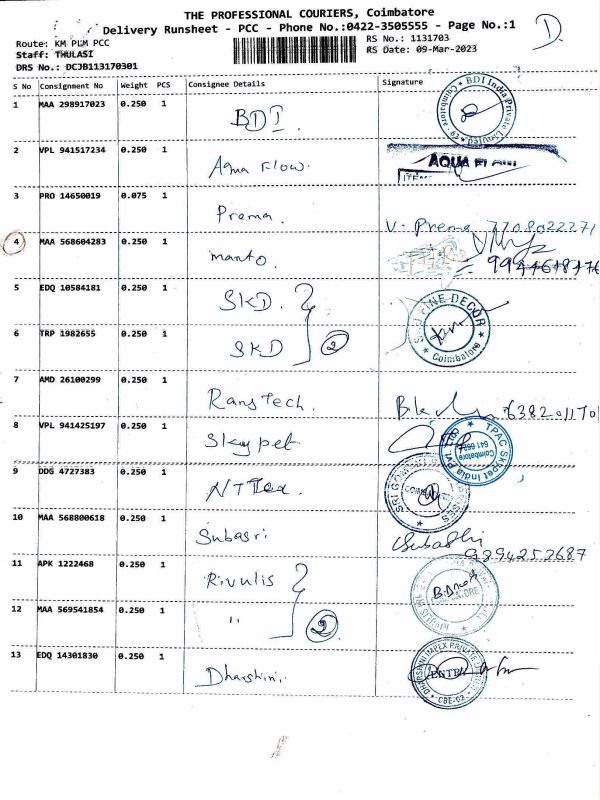 THE PROFESSIONAL COURIERS, Coimbatore
Delivery Runsheet - PCC - Phone No.:0422-3505555 - Page No.:1
D.
Route: KM PLM PCC
Staff: THULASI
DRS No.: DCJB113170301
RS No.: 1131703
RS Date: 09-Mar-2023
S No Consignment No Weight PCS Consignee Details Signature
1 MAA 298917023 0.250 1 BDI. BDI India Private Limited Coimbatore
2 VPL 941517234 0.250 1 Aqua Flow. AQUA FLOW
3 PRO 14650019 0.075 1 Prema. V. Prema 7708022271
4 MAA 568604283 0.250 1 manto
5 EDQ 10584181 0.250 1 SKD.
6 TRP 1982655 0.250 1 SKD 2 FINE DECOR Coimbatore
7 AMD 26100299 0.250 1 Ranstech. 6382011701
8 VPL 941425197 0.250 1 Skypet TPAC Skypet India Pvt. Ltd. Coimbatore
9 DDG 4727383 0.250 1 NTTex. SRI
10 MAA 568800618 0.250 1 Subasri Subashi
9894252687
11 APK 1222468 0.250 1 Rivulis
12 MAA 569541854 0.250 1 " 2
13 EDQ 14301830 0.250 1 Dharshini. DHARSHANI IMPEX PRIVATE ENTRY CBE-62